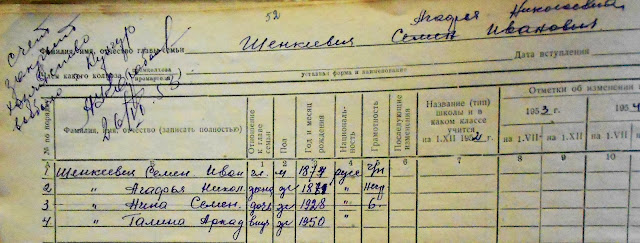 52
счет
закрыт
хозяйство
выбыло
26/VI.53
Агафья Николаевна
Фамилия, имя, отчество главы семьи Шенкевич Семен Иванович
какого колхоза
уставная форма и наименование
Дата вступления
Отметки об изменении
№ по порядку
Фамилия, имя, отчество (записать полностью)
Отношение к главе семьи
Пол
Год и месяц рождения
Национальность
Грамотность
Последующие изменения
Название (тип) школы и в каком классе учится на 1.XII 1952 г.
1953 г.
1954
на 1.VII
на 1.XII
на 1.VII
1 2 3 4 5 6 7 8 9 10
1 Шенкевич Семен Иван гл. м 1874 русс
2 " Агафья Никол. ж " Негр
3 " Нина Семен. дочь ж 1928 " 6.
4 " Галина Аркад внуч ж 1950 "